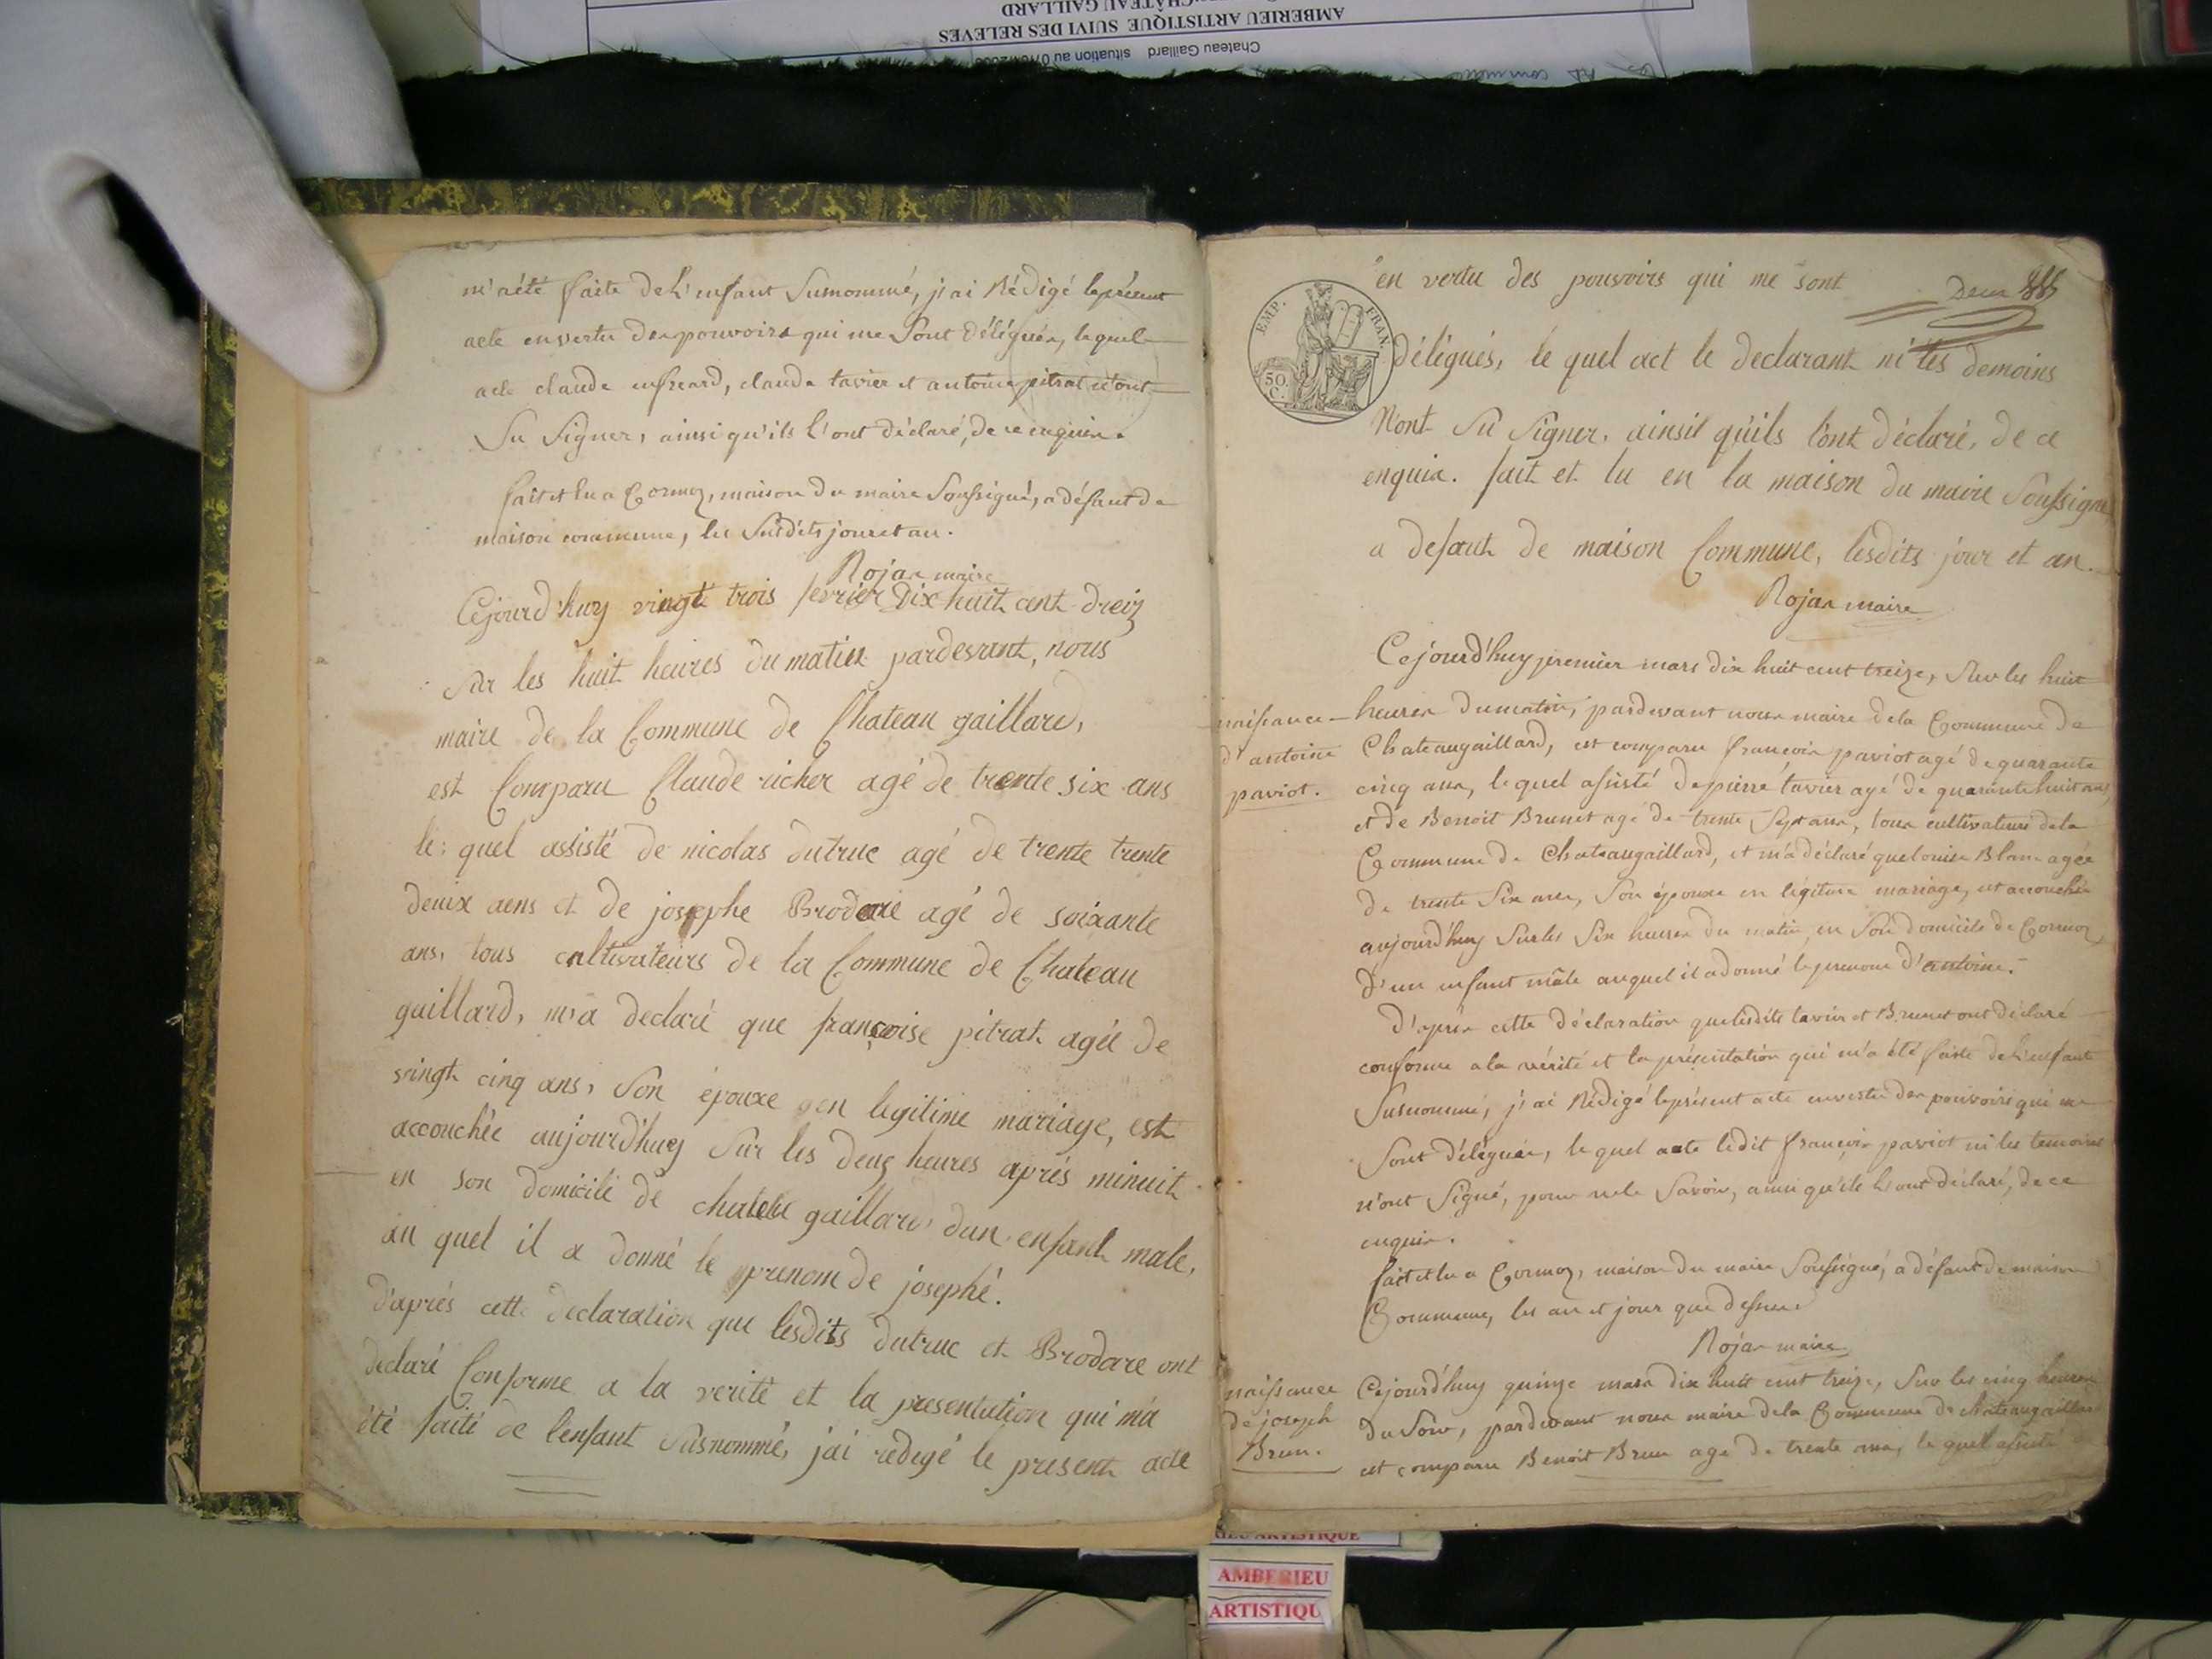 CHÂTEAU GAILLARD
AMBERIEU ARTISTIQUE SUIVI DES RELEVES
Chateau Gaillard situation au
m'a été faite de l'enfant Susnommé, j'ai Rédigé leprésent
acte envertu des pouvoirs qui me Sont délégués, lequel
acte claude , claude tavier et antoine pitrat n'ont
Su Signer, ainsi qu'ils l'ont déclaré, de ce enquis.
fait et lu a Cormoz, maison du maire Soussigné, a défaut de
maison commune, les Susdits jour et an.
Rojas maire
Cejourd'huy vingt trois fevrier Dix huit cent treiz
Sur les huit heures du matin pardevant, nous
maire de la Commune de Chateau gaillard,
est Comparu Claude richer agé de trente six ans
le: quel assisté de nicolas dutruc agé de trente trente
deuix aens et de josephe Brodare agé de soixante
ans, tous cultivateurs de la Commune de Chateau
gaillard, m'a declaré que françoise pitrat agée de
vingt cinq ans, Son épouxe en legitime mariage, est
accouchée aujourd'huy Sur les deux heures aprés minuit
en son domicile de chateau gaillard, dun enfant male,
au quel il a donné le prenom de josephe.
d'aprés cette declaration que lesdits dutruc et Brodare ont
declaré Conforme a la verité et la presentation qui m'a
été faite de l'enfant Susnommé, j'ai redigé le present acte
EMP. FRAN.
50.
C.
en vertu des pouvoirs qui me sont
Deux
délégués, le quel act le declarant ni les demoins
N'ont Su Signer, ainsit qu'ils l'ont déclaré, de ce
enquis. fait et lu en la maison du maire Soussigné
a defaut de maison Commune, lesdits jour et an.
Rojas maire
Cejourd'huy premier mars dix huit cent treize, Sur les huit
naissance
d'antoine
paviot.
heures dumatin, pardevant nous maire dela Commune de
Chateaugaillard, est comparu françois paviot agé de quarante
cinq ans, lequel assisté de pierre tavier agé de quarante huit ans,
et de Benoit Brunet agé de trente Sept ans, tous cultivateurs dela
Commune de Chateaugaillard, et m'a déclaré que louise Blanc agée
de trente Six ans, Son épouse en légitime mariage, est accouchée
aujourd'huy Sur les Six heures du matin, en Son domicile de Cormoz,
d'un enfant mâle auquel il a donné leprenom d'antoine.
D'après cette déclaration que lesdits tavier et Brunet ont déclaré
conforme a la vérité et la présentation qui m'a été faite de l'enfant
Susnommé, j'ai Rédigé leprésent acte envertu des pouvoirs qui me
Sont délégués, le quel acte ledit françois paviot ni les temoins
n'ont Signé, pour ne le Savoir, ainsi qu'ils l'ont déclaré, de ce
enquis.
fait et lu a Cormoz, maison du maire Soussigné, a défaut de maison
Commune, les an et jour que dessus
Rojas maire
naissance
de joseph
Brun.
Cejourd'huy quinze mars dix huit cent treize, Sur les cinq heures
du Soir, pardevant nous maire dela Commune de chateaugaillard
est comparu Benoit Brun agé de trente ans, le quel assisté
AMBERIEU
ARTISTIQU